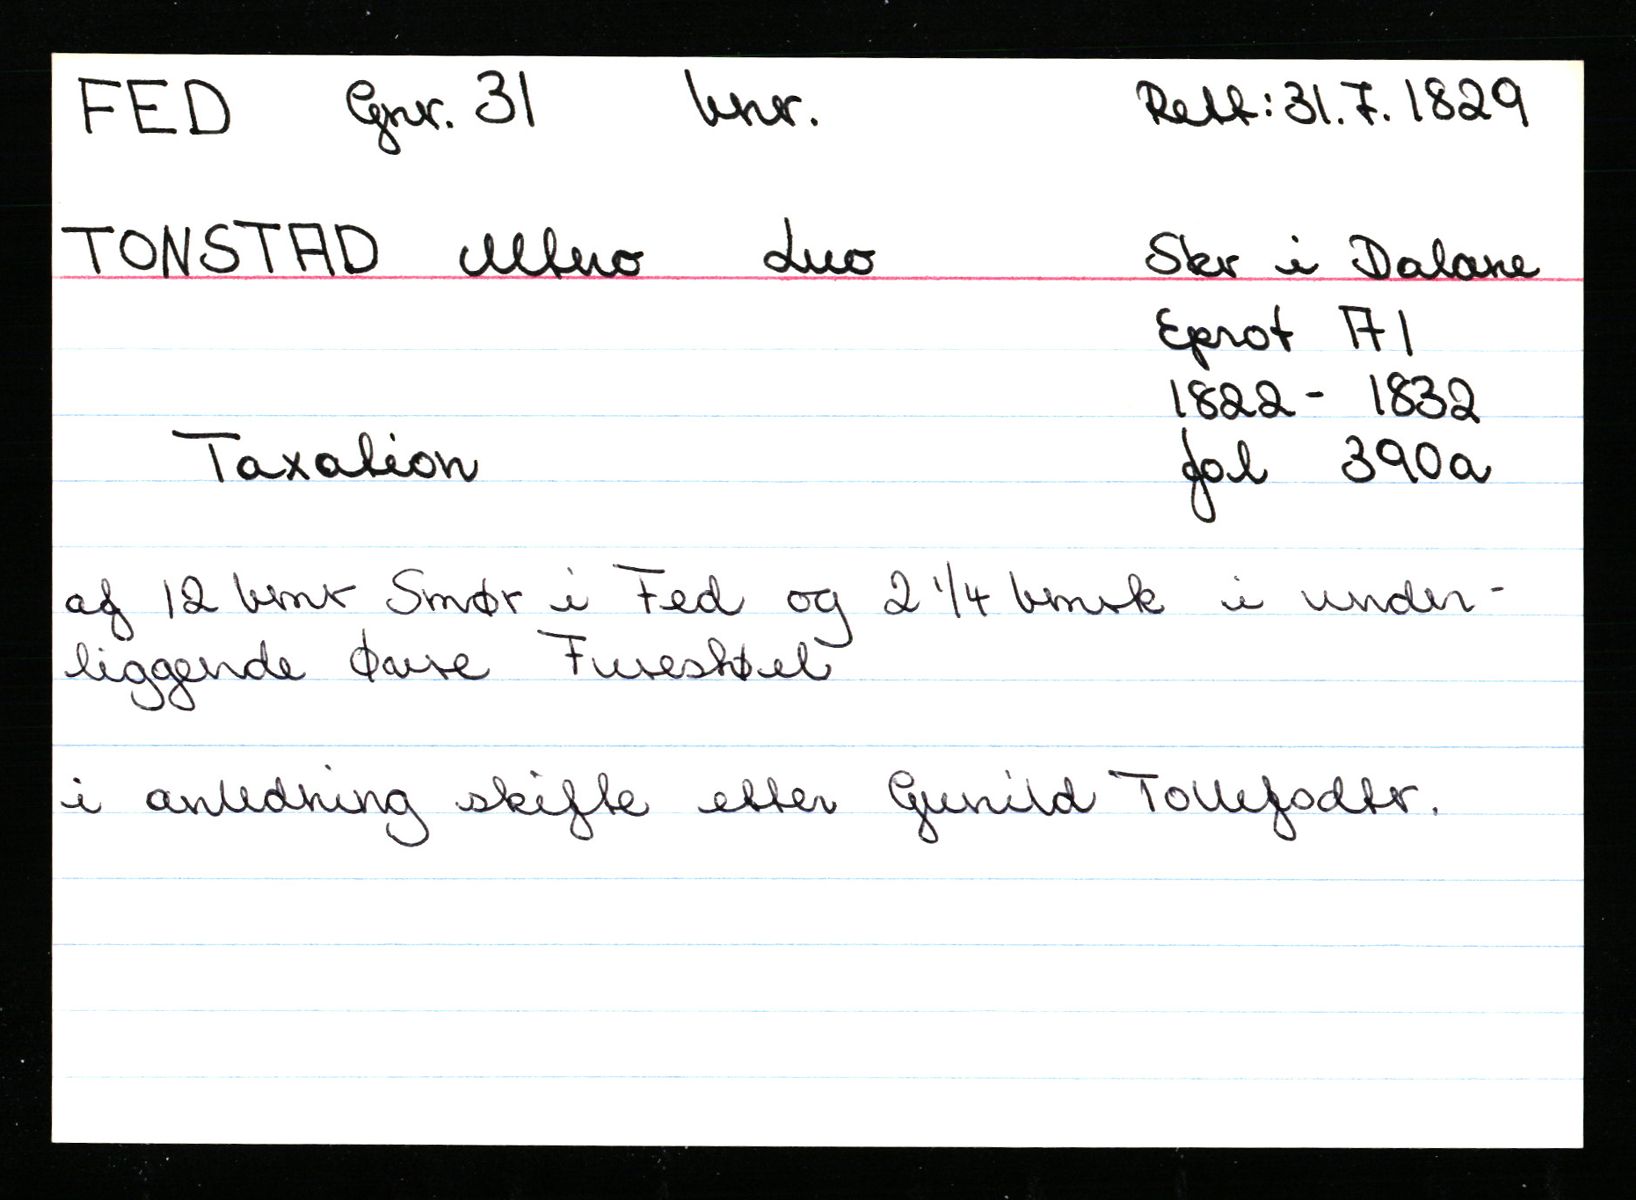 FED Gnr. 31 bnr. Rett: 31.7.1829
TONSTAD Mtno Lno Skr i Dalane
Eprot A 1
1822 - 1832
Taxation fol 390a
af 12 bmr Smør i Fed og 2 1/4 bmrk i under-
liggende Øavre Fureskøel
i anledning skifte etter Gunild Tollefsdtr.